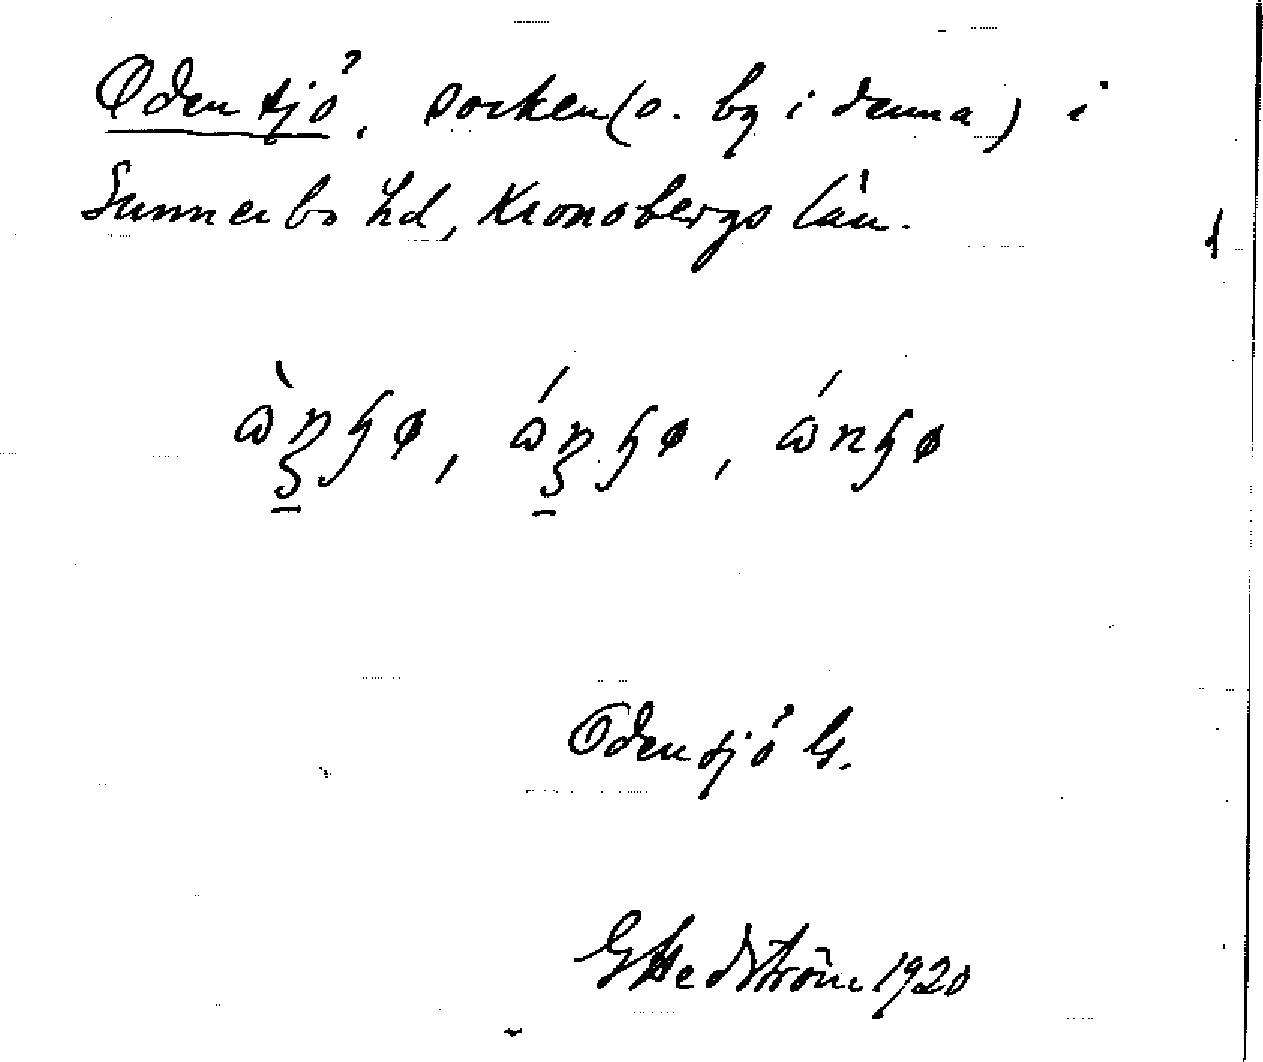 Odensjö, socken (o. by i denna) i
Sunnerbo hd, Kronobergs län.
Odensjö G.
G Hedström 1920